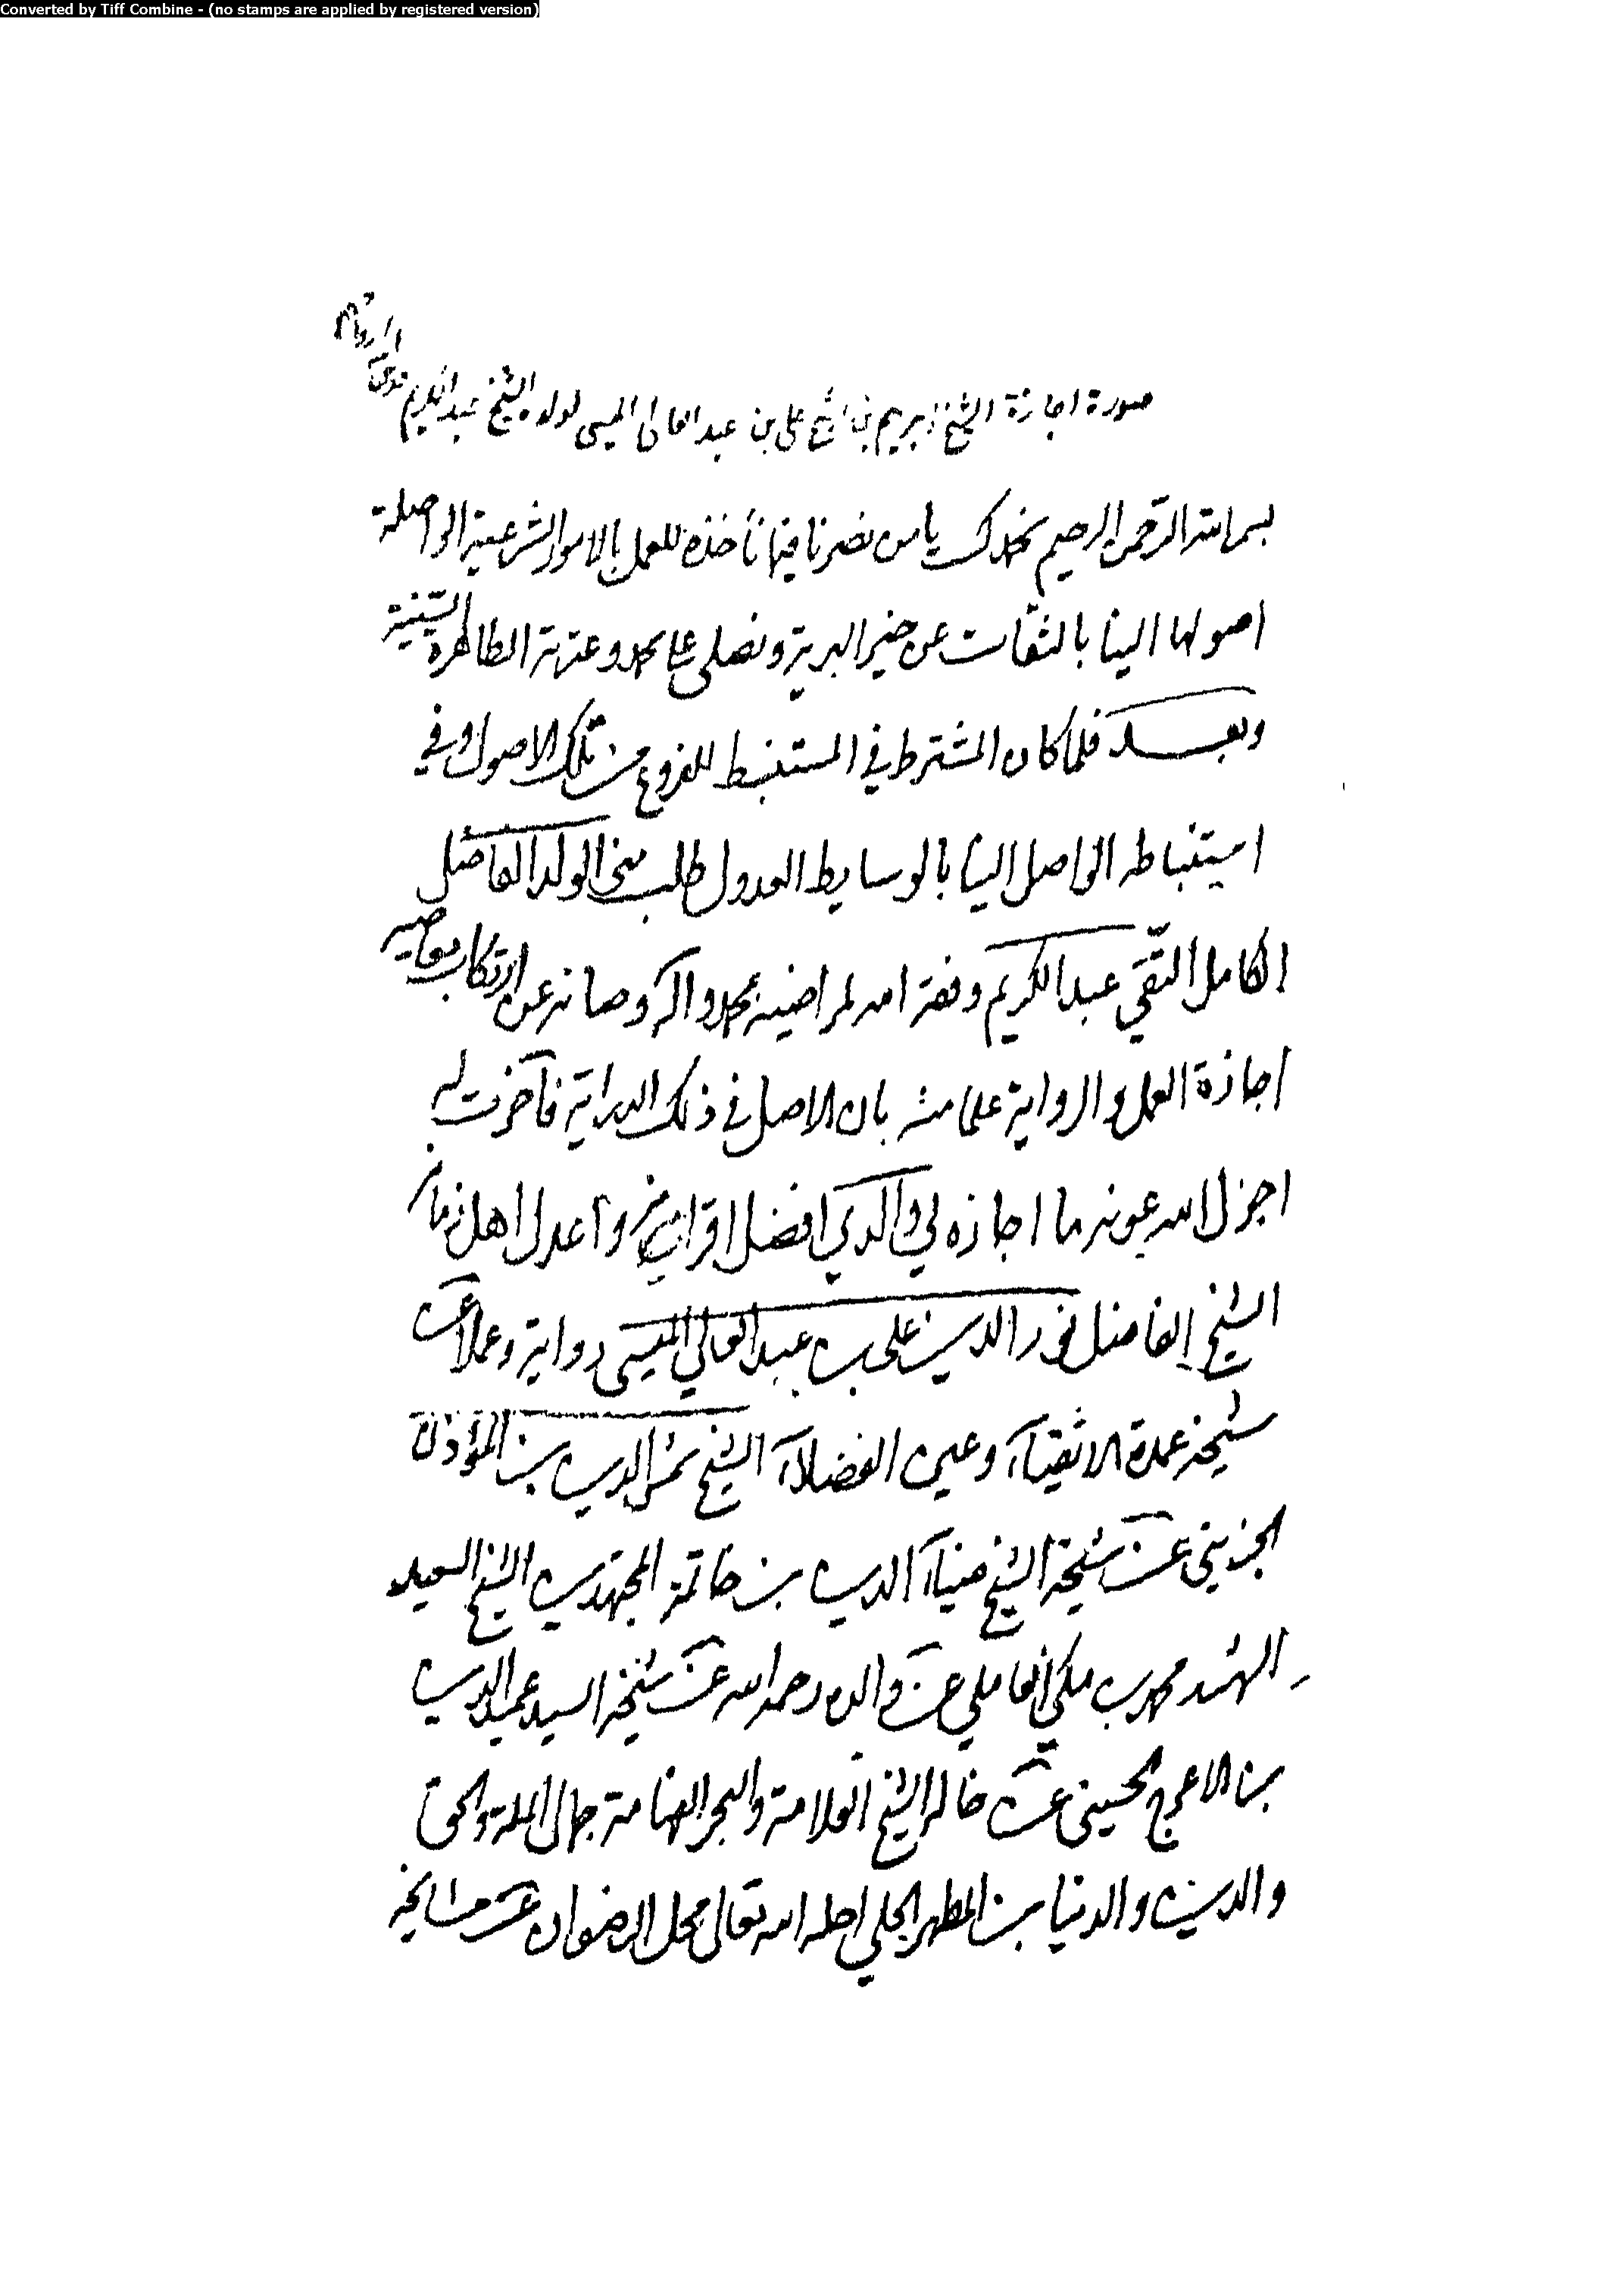 Converted by Tiff Combine - (no stamps are applied by registered version)
صورة اجازة الشيخ ابرهيم بن الشيخ علي بن عبد العالي الميسي لولده الشيخ عبد الكريم
بسم الله الرحمن الرحيم نحمدك يا من نصرنا فيما نأخذه للعمل بالامور الشرعية الواصلة
اصولها الينا بالثقات عن خير البرية ونصلي على محمد وعترته الطاهرة السنية
وبعد فلما كان المشترط في المستنبط للفروع من تلك الاصول وفي
استنباطه الواصل الينا بالوسايط العدول طلب مني الولد الفاضل
الكامل التقي عبد الكريم وفقه الله لمراضيه بمحمد وآله وصانه عن ارتكاب معاصيه
اجازة العمل والرواية علما منه بان الاصل في ذلك الدراية فآخرت له
اجزل الله عونه ما اجازه لي والدي افضل اقرانه وأعدل اهل زمانه
الشيخ الفاضل نور الدين علي بن عبد العالي الميسي رواية وعملا عن
شيخه عمدة الاتقيآء وعين الفضلآء الشيخ شمس الدين بن المؤذن
الجزيني عن شيخه الشيخ ضيآء الدين بن خاتمة المجتهدين الشيخ السعيد
الشهيد محمد بن مكي العاملي عن والده رحمه الله عن شيخه السيد عميد الدين
بن الاعرج الحسيني عن خاله الشيخ العلامة والبحر الفهامة جمال الملة والحق
والدين والدنيا بن المطهر الحلي احله الله تعالى محل الرضوان عن مشايخه